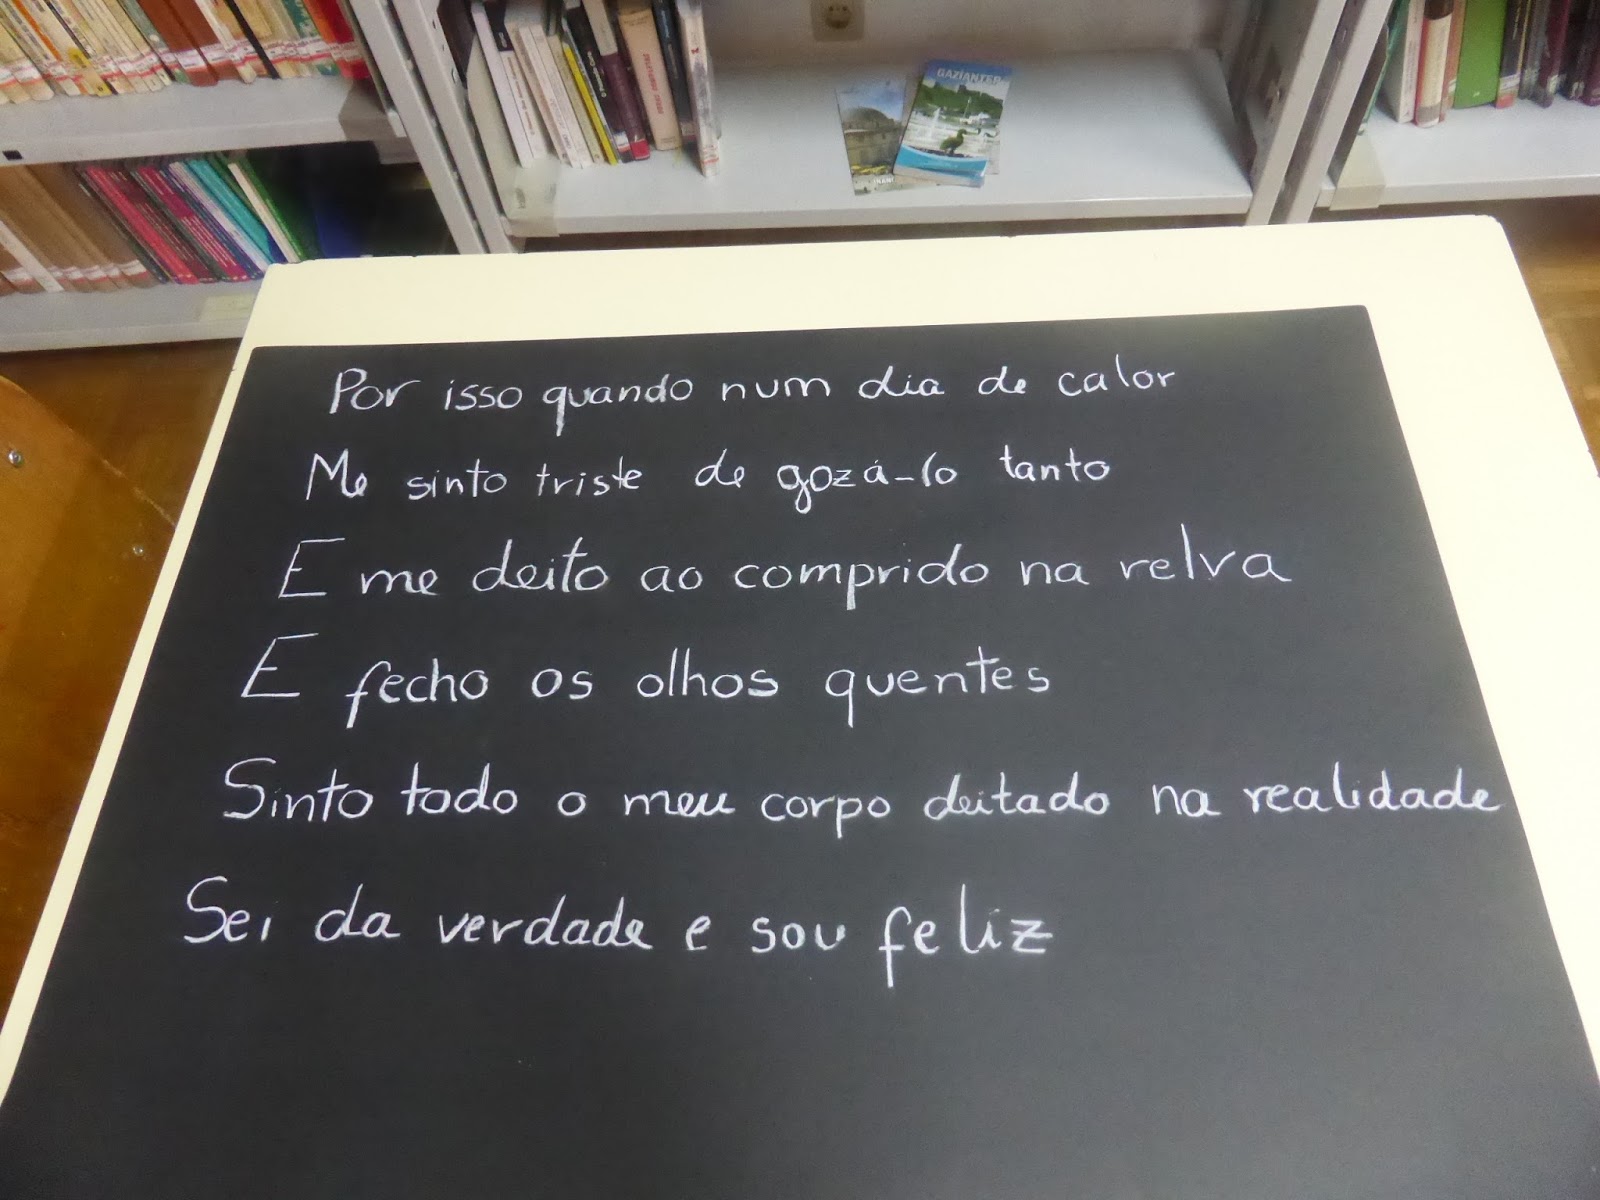 GAZIANTEP
Por isso quando num dia de calor
Me sinto triste de gozá-lo tanto
E me deito ao comprido na relva
E fecho os olhos quentes
Sinto todo o meu corpo deitado na realidade
Sei da verdade e sou feliz